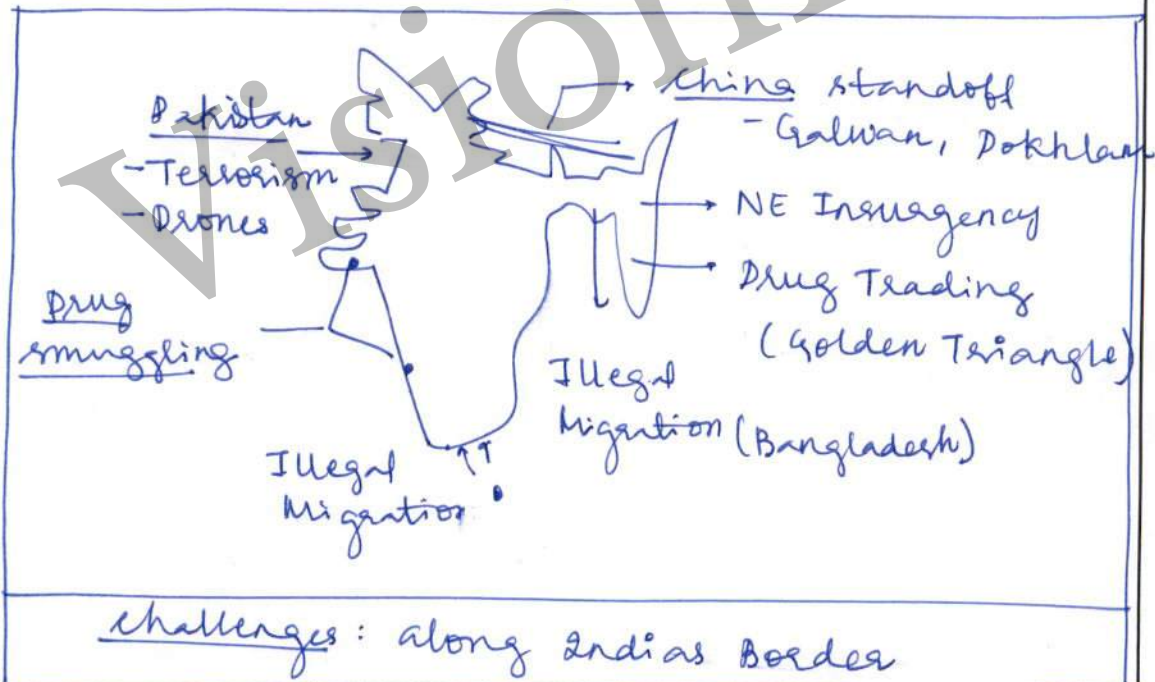 Pakistan
-Terrorism
-Drones
China standoff
- Galwan, Dokhlam
NE Insurgency
Drug Trading
(Golden Triangle)
Drug
smuggling
Illegal
Migration (Bangladesh)
Illegal
Migration
Challenges: along Indias Border